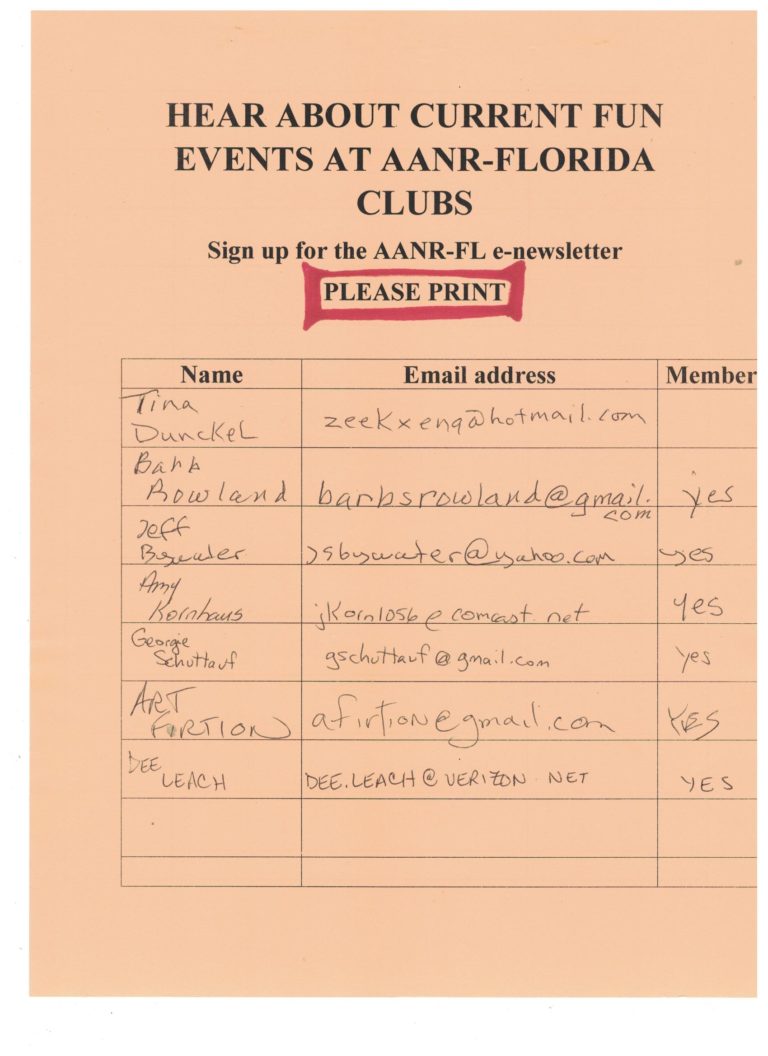 HEAR ABOUT CURRENT FUN
EVENTS AT AANR-FLORIDA
CLUBS
Sign up for the AANR-FL e-newsletter
PLEASE PRINT
Name Email address Member
Tina
Dunckel zeekxena@hotmail.com
Barb
Rowland barbsrowland@gmail.
com yes
Jeff
Bywater jsbywater@yahoo.com yes
Amy
Kornhaus jkorn1056@comcast.net yes
Georgie
Schuttauf gschuttauf@gmail.com yes
ART
FIRTION afirtion@gmail.com YES
DEE
LEACH DEE.LEACH@VERIZON.NET YES